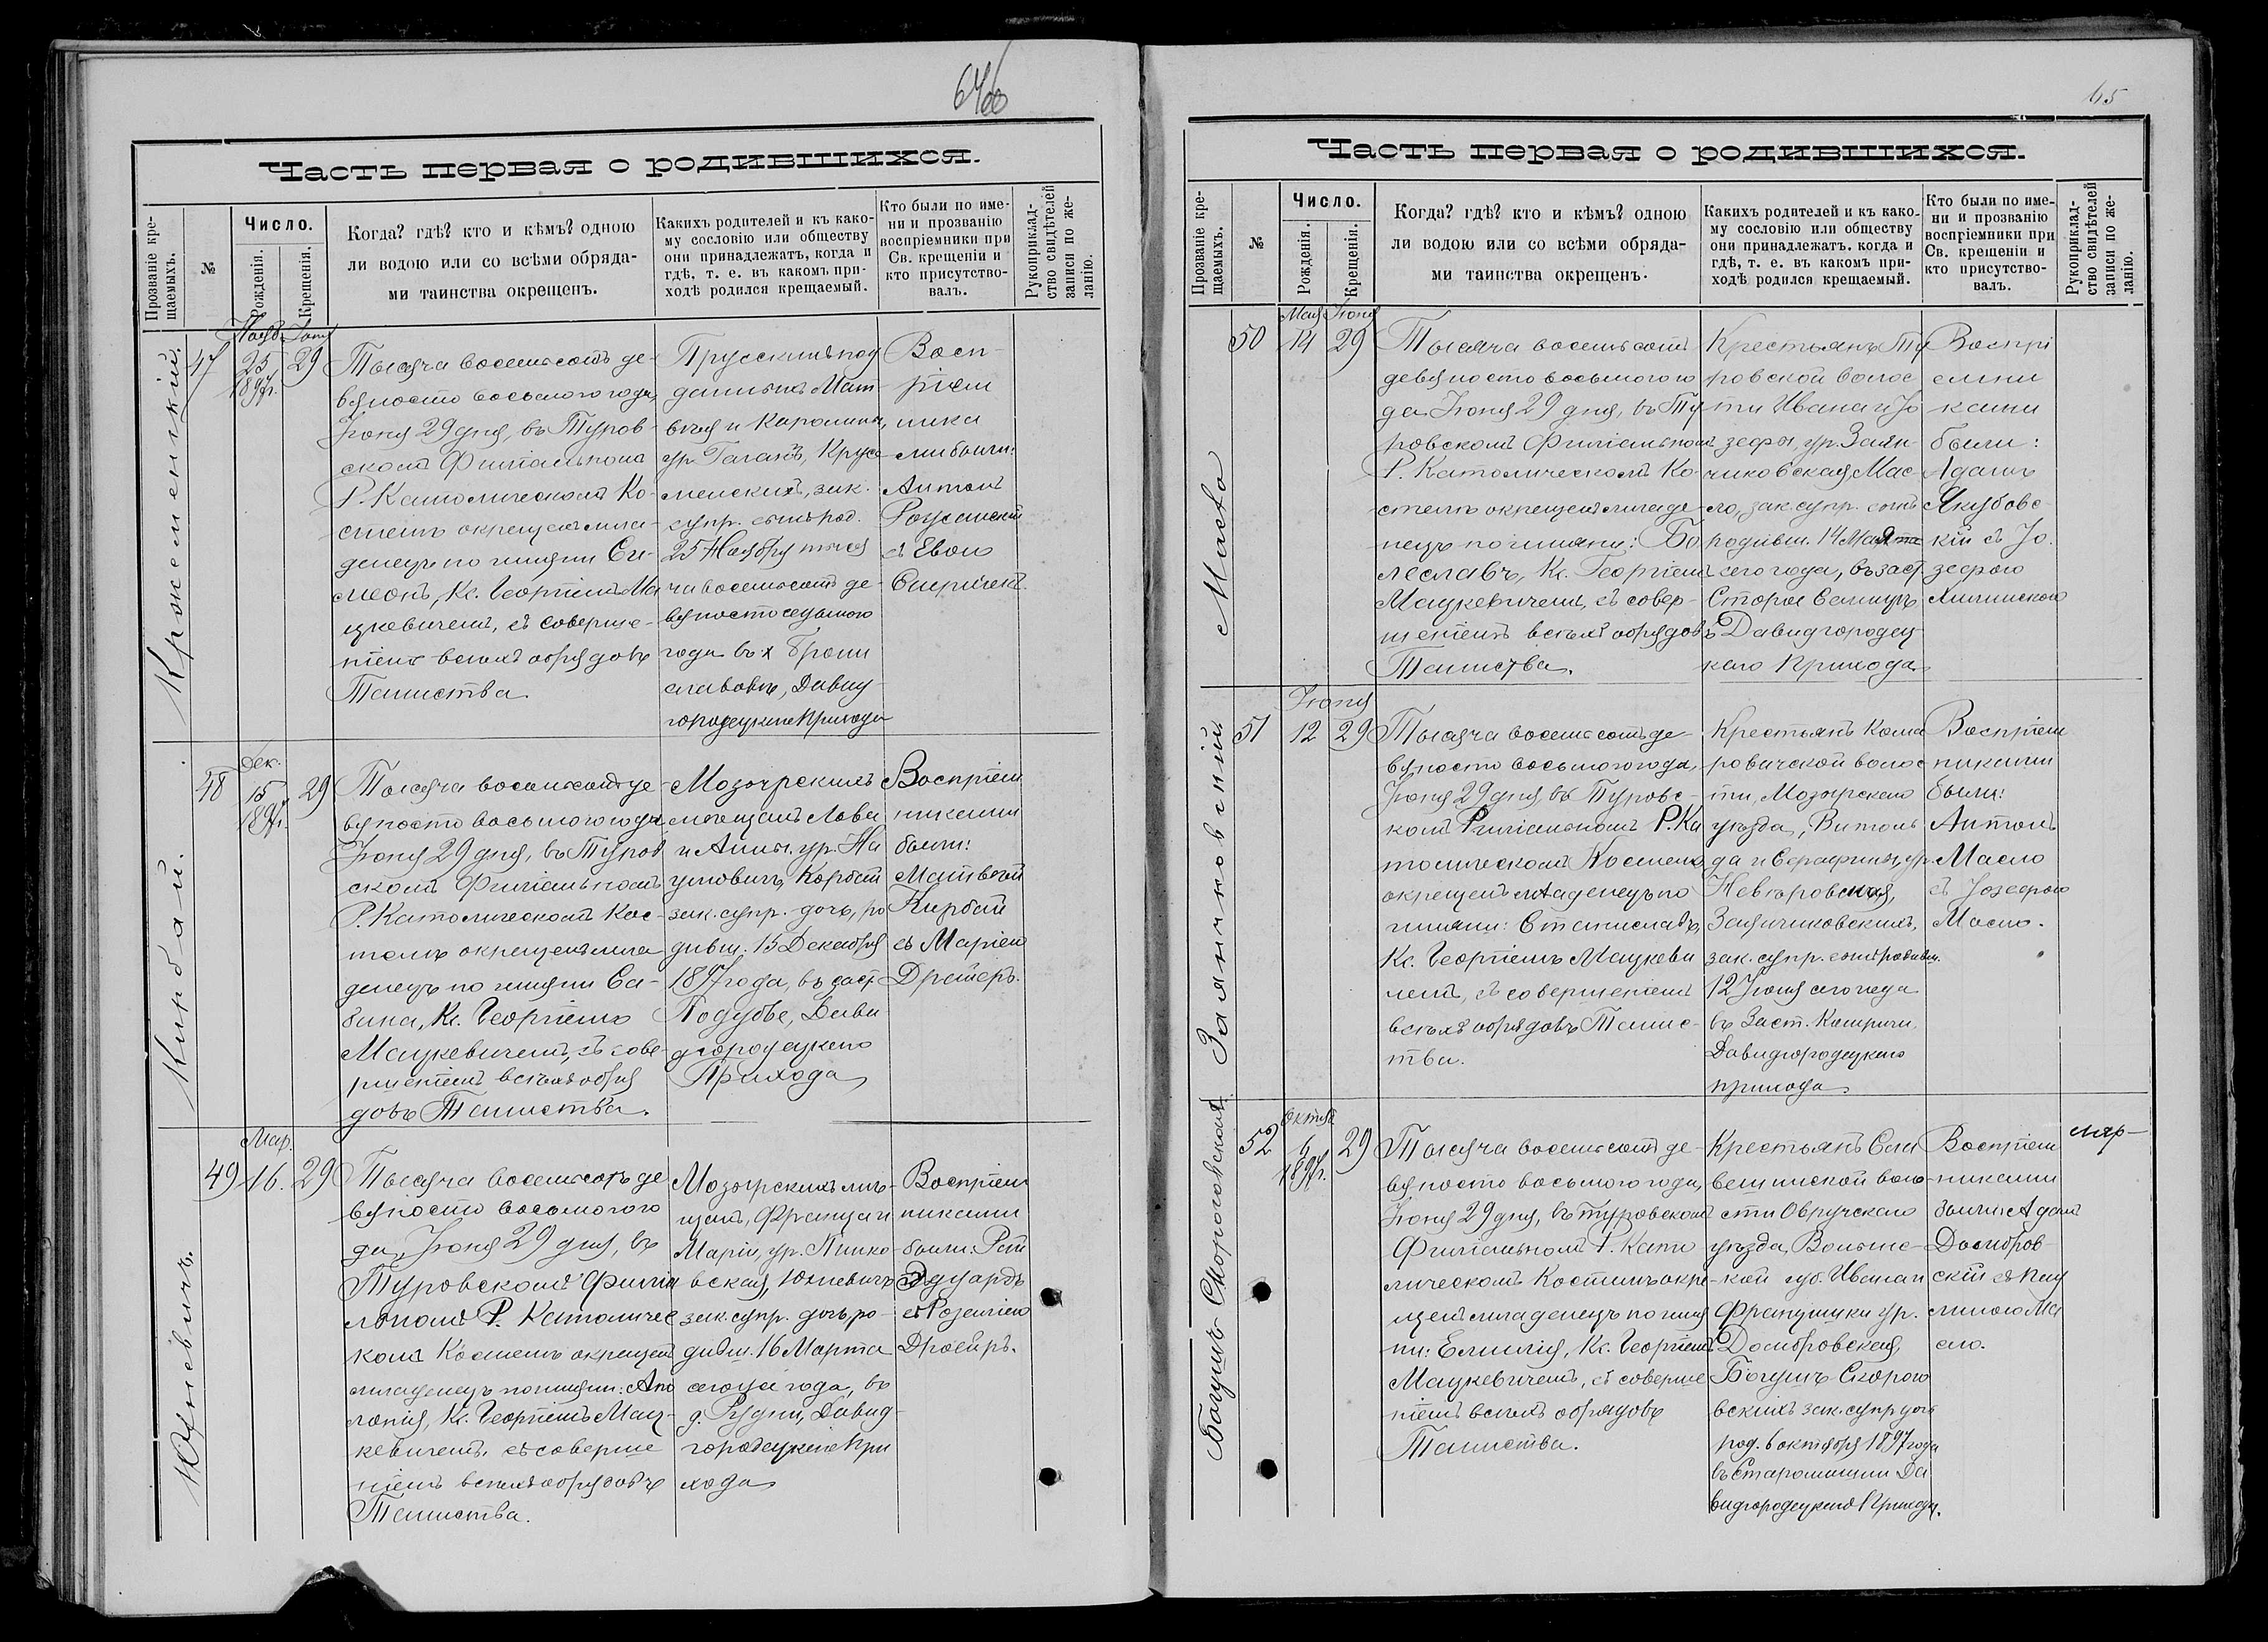 64об
Часть первая о родившихся.
Прозваніе крещаемыхъ.
№
Число.
Рожденія.
Крещенія.
Когда? гдѣ? кто и кѣмъ? одною
ли водою или со всѣми обряда-
ми таинства окрещенъ.
Какихъ родителей и къ како-
му сословію или обществу
они принадлежатъ, когда и
гдѣ, т. е. въ какомъ при-
ходѣ родился крещаемый.
Кто были по име-
ни и прозванію
воспріемники при
Св. крещеніи и
кто присутство-
валъ.
Рукоприклад-
ство свидѣтелей
записи по же-
ланію.
47
25
1897г.
29
Тысяча восемьсотъ де-
вяносто восьмого года,
Іюня 29 дня, въ Туров-
скомъ Филіальномъ
Р. Католическомъ Ко-
стелѣ окрещенъ мла-
денецъ по имени Си-
меонъ, Кс. Георгіемъ Ма
цкевичемъ, съ соверше-
ніемъ всѣхъ обрядовъ
Таинства.
Прусскихъ под
данныхъ Мат-
вѣя и Каролины,
ур.
зак.
супр. сынъ род.
25 Ноября тыся
ча восемьсотъ де-
вяносто седьмого
года въ х Брони
славовѣ, Давид-
городецкаго Прихода
Восп-
ріем
ника
ми были:
Антонъ
съ Евою
48
Дек.
15
1897г.
29
Кирбай.
Тысяча восемьсотъ де-
вяносто восьмого года
Іюня 29 дня, въ Туров
скомъ Филіальномъ
Р. Католическомъ Кос-
телѣ окрещенъ мла
денецъ по имени Са-
бина, Кс. Георгіемъ
Мацкевичемъ, съ сове-
ршеніемъ всѣхъ обря
довъ Таинства.
Мозырскихъ
мѣщанъ
и Анны, ур. На
умовичъ,
зак. супр. дочь, ро
дивш. 15 Декабря
1897 года, въ заст.
Подубье, Дави
дгородецкаго
Прихода
Воспріем
никами
были:
Матвѣй
Кирбай
съ Маріею
Дрейеръ.
49
Мар.
16.
29
Юхневичъ.
Тысяча восемьсотъ де
вяносто восьмого го
да, Іюня 29 дня, въ
Туровскомъ Филіа
льномъ Р. Католичес
комъ Костелѣ окрещенъ
младенецъ по имени: Апо
лонія, Кс. Георгіемъ Мац-
кевичемъ, съ соверше
ніемъ всѣхъ обрядовъ
Таинства.
Мозырскихъ мѣ-
щанъ, Франца и
Маріи, ур.
Юхневичъ
зак. супр. дочь, ро-
дивш. 16 Марта
сего года, въ
д. Рудни, Давид-
городецкаго При
хода
Воспріем
никами
были:
Эдуардъ
съ Розаліею
65
Часть первая о родившихся.
Прозваніе крещаемыхъ.
№
Число.
Рожденія.
Крещенія.
Когда? гдѣ? кто и кѣмъ? одною
ли водою или со всѣми обряда-
ми таинства окрещенъ.
Какихъ родителей и къ како-
му сословію или обществу
они принадлежатъ. когда и
гдѣ, т. е. въ какомъ при-
ходѣ родился крещаемый.
Кто были по име-
ни и прозванію
воспріемники при
Св. крещеніи и
кто присутство-
валъ.
Рукоприклад-
ство свидѣтелей
записи по же-
ланію.
50
Мая
14
Іюня
29
Масло
Тысяча восемьсотъ
девяносто восьмого го
да Іюня 29 дня, въ Ту
ровскомъ Филіальномъ
Р. Католическомъ Ко-
стелѣ окрещенъ младе-
нецъ по имени: Бо
леславъ, Кс. Георгіемъ
Мацкевичемъ, съ совер-
шеніемъ всѣхъ обрядовъ
Таинства.
Крестьянъ Ту
ровской волос
ти Ивана и Іо
зефы, ур. Заян-
чковская, Мас-
ло, зак. супр. сынъ
родивш. 14 Мая
сего года, въ заст.
Давидгородец
каго Прихода
Воспрі
емни
ками
были:
Адамъ
Якубовс-
кій съ Іо-
зефою
51
Іюня
12
29
Заянчковскій
Тысяча восемьсотъ де-
вяносто восьмого года,
Іюня 29 дня, въ Туровс-
комъ Филіальномъ Р. Ка
толическомъ Костелѣ
окрещенъ младенецъ по
имени: Станиславъ,
Кс. Георгіемъ Мацкеви
чемъ, съ совершеніемъ
всѣхъ обрядовъ Таинс-
тва.
Крестьянъ Кома
ровичской волос
ти, Мозырскаго
уѣзда, Витоль
да и Серафины, ур.
Невѣровская,
Заянчковскихъ,
зак. супр. сынъ родивш.
12 Іюня сего года
въ Заст.
Давидгородецкаго
прихода
Воспріем
никами
были:
Антонъ
Масло
съ Іозефою
Масло.
52
Октяб
6
1897г.
29
Богушъ-Скороговская
Тысяча восемьсотъ де-
вяносто восьмого года,
Іюня 29 дня, въ Туровскомъ
Филіальномъ Р. Като
лическомъ Костелѣ окре-
щенъ младенецъ по име
ни: Емилія, Кс. Георгіемъ
Мацкевичемъ, съ соверше
ніемъ всѣхъ обрядовъ
Таинства.
Крестьянъ Сла
вечинской воло-
сти Овручскаго
уѣзда, Волынс-
кой губ. Ивана и
Францишки ур.
Домбровская,
Богушъ-Скорого
вскихъ зак. супр. дочь
род. 6 октября 1897 года
въ Старомлыни Да
видгородецкаго Прихода.
Воспріем
никами
были: Адамъ
Домбров-
скій съ Пау
линою Ма
сло.